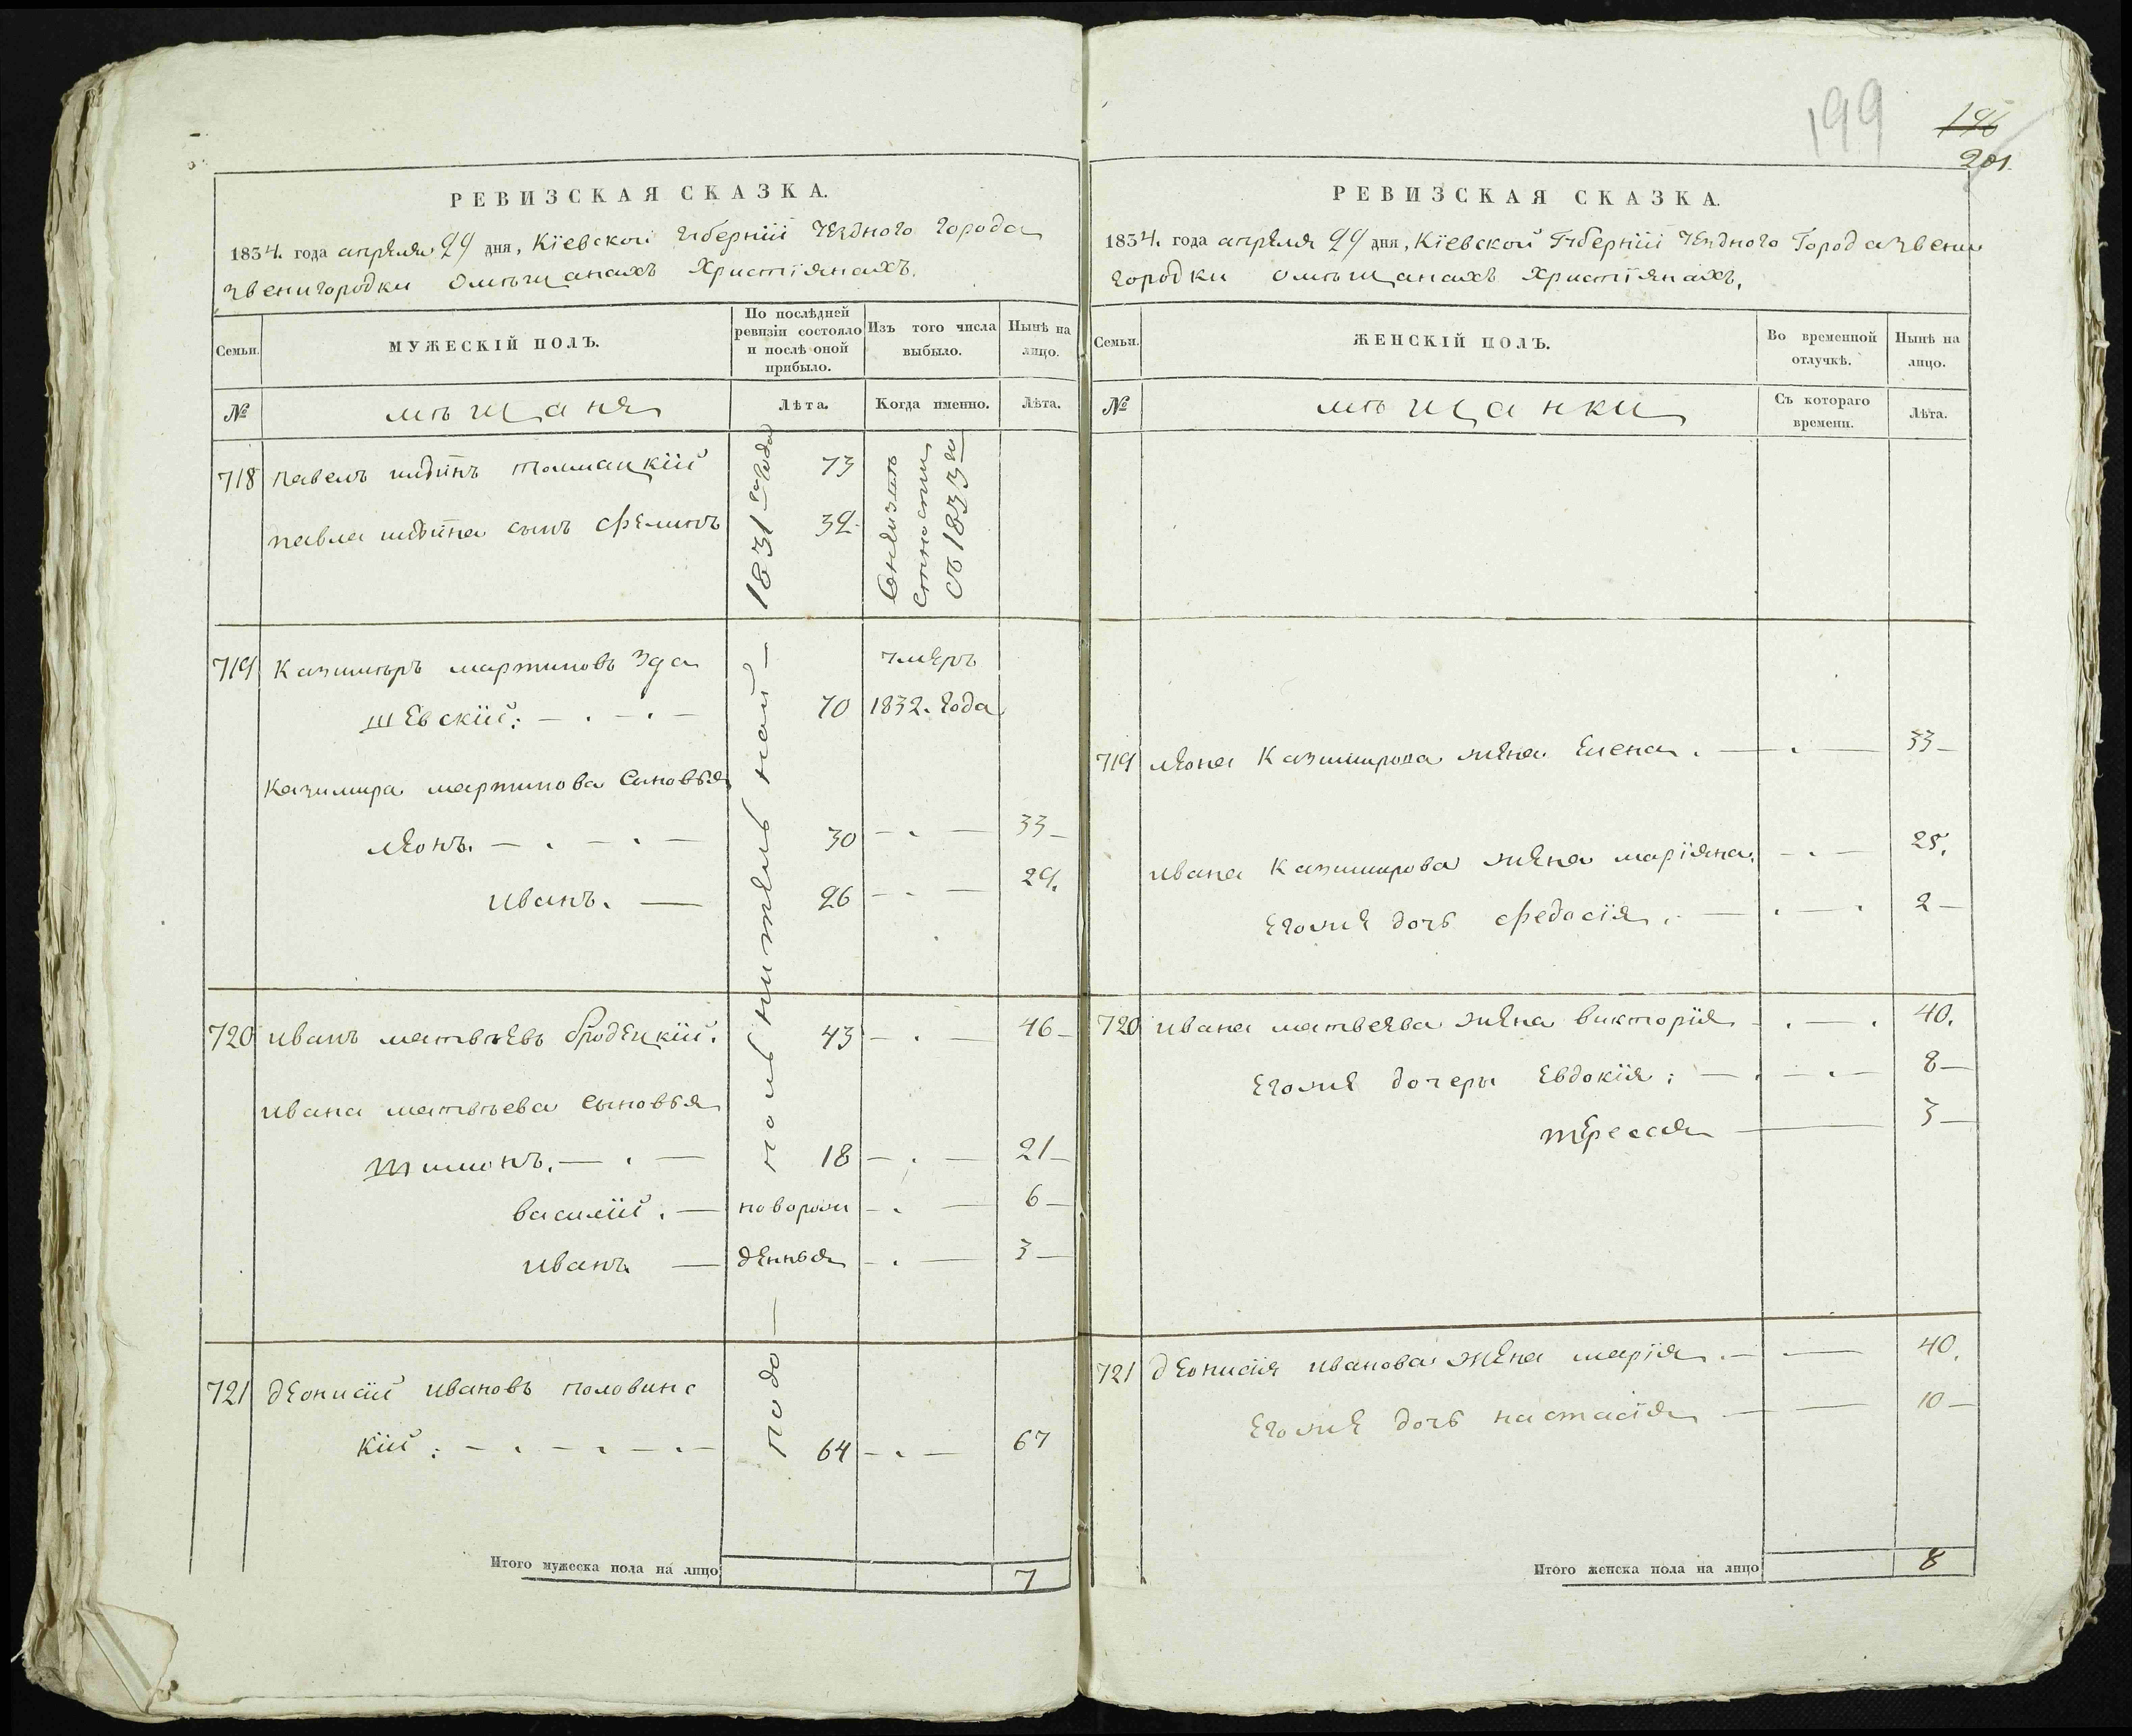 199
196
201.
РЕВИЗСКАЯ СКАЗКА.
1834. года апреля 29 дня, Кіевской Губерніи уезднаго города
звенигородки о мѣщанахъ Христіянахъ.
Семьи.
МУЖЕСКІЙ ПОЛЪ.
По послѣдней ревизіи состояло и послѣ оной прибыло.
Изъ того числа выбыло.
Нынѣ на лицо.
№
мѣщаня
Лѣта.
Когда именно.
Лѣта.
718 павелъ толмацкій 73
павла сынъ 32
1831 года
съ 1833 го
719 Казимѣръ мартиновъ Зда
шевскій: 70
умеръ
1832. года
Казимира мартинова сыновья
леонъ. 30 33
иванъ. 26 29.
720 иванъ матвѣевъ бродецкій. 43 46
ивана матвѣева сыновья
тимонъ. 18 21
василій. новорож 6
иванъ денныя 3
721 деонисій ивановъ половинс
кій: 64 67
по дополнительной
Итого мужеска пола на лицо 7
РЕВИЗСКАЯ СКАЗКА.
1834. года апреля 29 дня, Кіевской Губерніи уезднаго Города звени
городки о мѣщанахъ Христіянахъ.
Семьи.
ЖЕНСКІЙ ПОЛЪ.
Во временной отлучкѣ.
Нынѣ на лицо.
№
мѣщанки
Съ котораго времени.
Лѣта.
719 леона Казимирова жена Елена. 33
ивана Казимирова жена маріяна. 25.
Егоже дочь федосія. 2
720 ивана матвеева жена викторія 40.
Егоже дочеры Евдокія: 8
тересся 3
721 деонисія иванова жена марія. 40.
Егоже дочь настасія 10
Итого женска пола на лицо 8